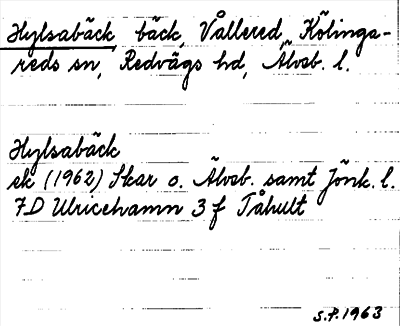 Hylsabäck bäck, Vållered, Kölinga-
reds sn, Redvägs hd, Älvsb. l.
Hylsabäck
ek (1962) Skar o. Älvsb. samt Jönk. l.
7D Ulricehamn 3 f Tåhult
S.F. 1963